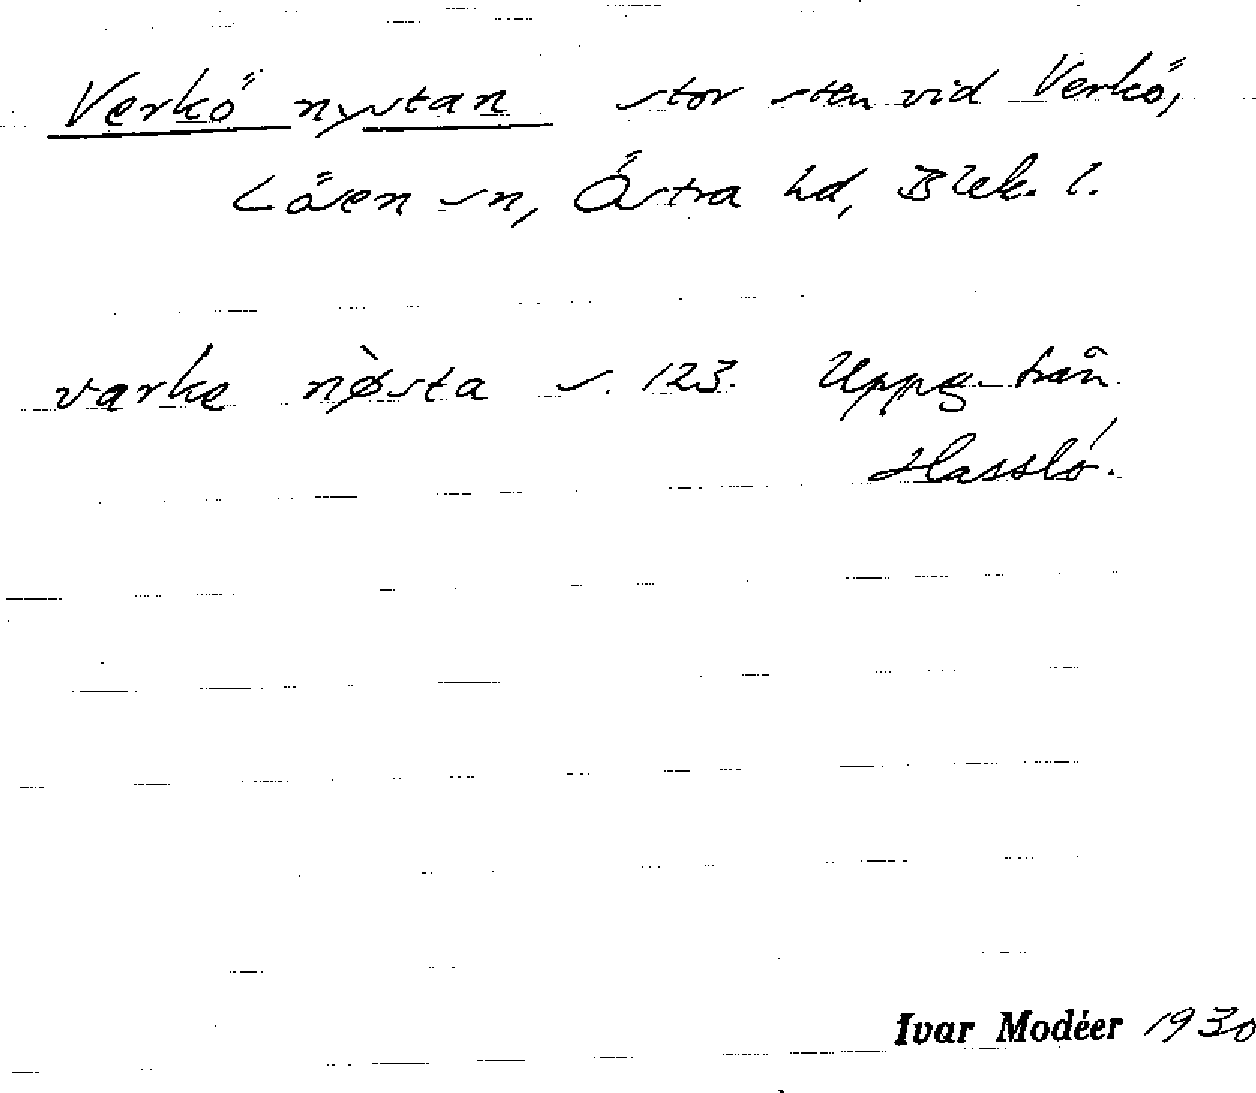 Verkö nystan stor sten vid Verkö,
Lösen sn, Östra hd, Blek. l.
værke nø̀sta s. 123. Uppg. från
Hasslö.
Ivar Modéer 1930